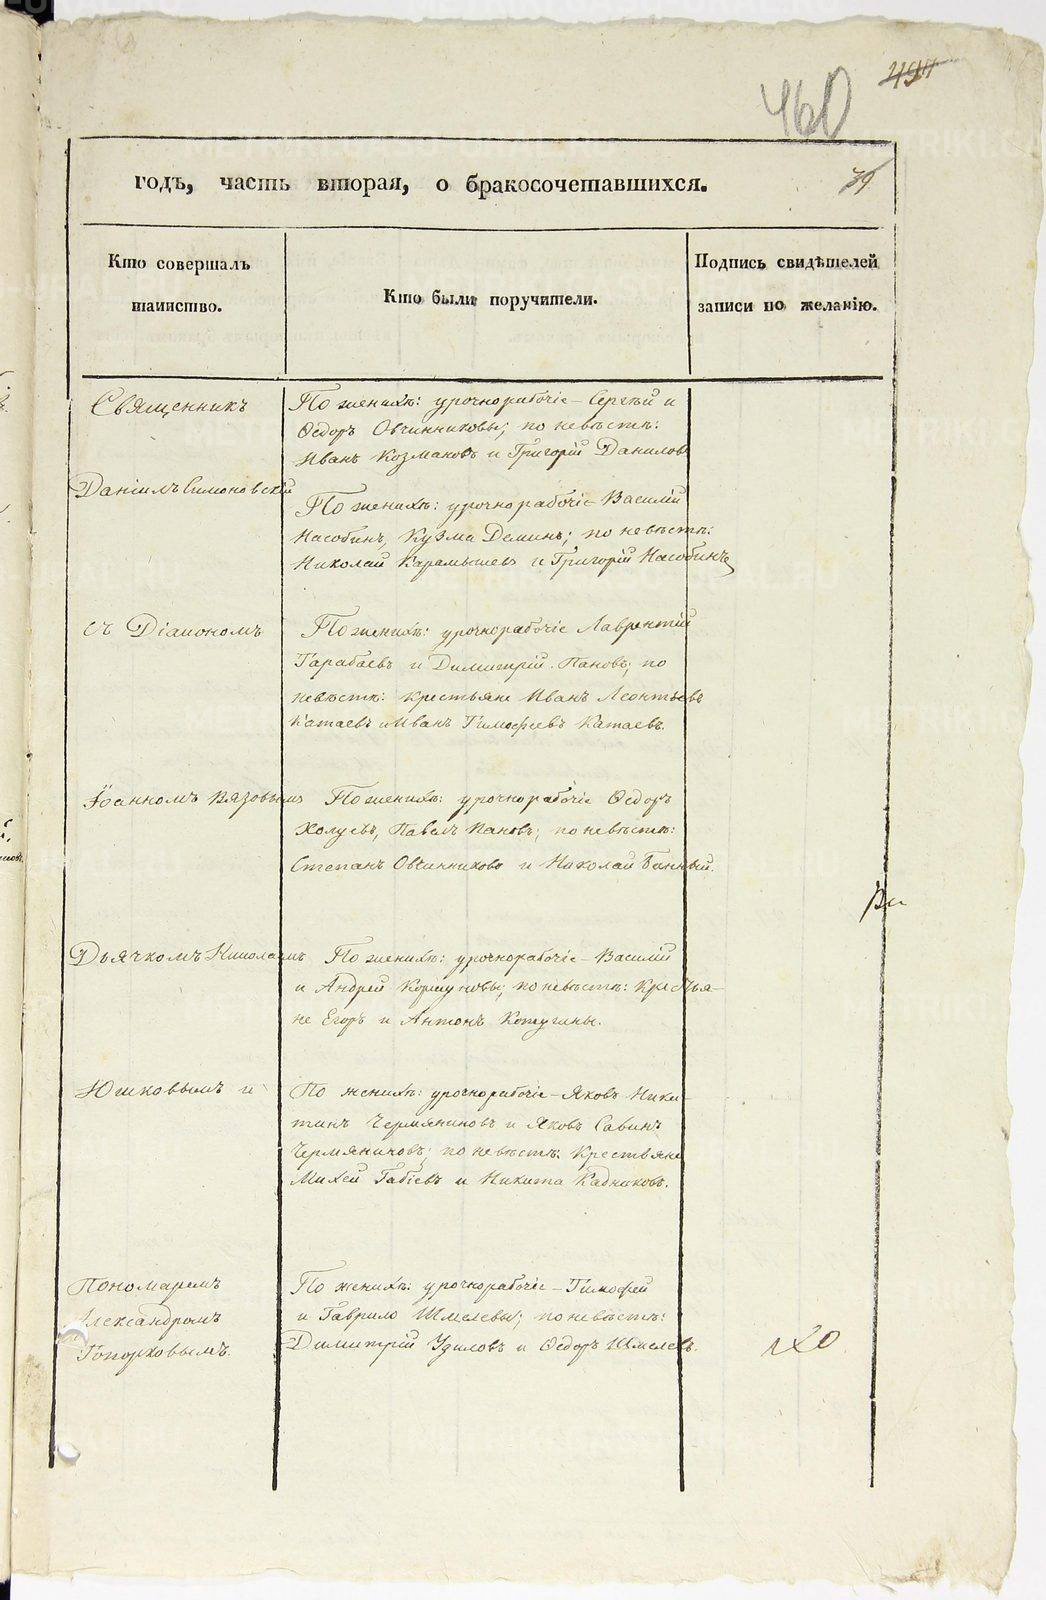 460
годъ, часть вторая, о бракосочетавшихся.
39
Кто совершалъ
таинство.
Кто были поручители.
Подпись свидѣтелей
записи по желанію.
Священникъ
Даніилъ Симоновскій
съ Діакономъ
Іоанномъ Вязовымъ
Дьячкомъ Николаемъ
Юшковымъ и
Пономаремъ
Александромъ
Топорковымъ.
По женихѣ: урочнорабочіе – Сергѣй и
Ѳедоръ Овчинниковы; по невѣстѣ:
Иванъ Козмаковъ и Григорій Даниловъ
По женихѣ: урочнорабочіе Василій
Насобинъ, Кузма Деминъ; по невѣстѣ:
Николай Карамышевъ и Григорій Насобинъ
По женихѣ: урочнорабочіе Лаврентій
Тарабаевъ и Димитрій Пановъ; по
невѣстѣ: крестьяне Иванъ Леонтьевъ
Катаевъ и Иванъ Тимофеевъ Катаевъ.
По женихѣ: урочнорабочіе Ѳедоръ
Холуевъ, Павелъ Пановъ; по невѣстѣ:
Степанъ Овчинниковъ и Николай Банный.
По женихѣ: урочнорабочіе – Василій
и Андрей Коршуновы; по невѣстѣ: крестья-
не Егоръ и Антонъ Котугины.
По женихѣ: урочнорабочіе – Яковъ Ники-
тинъ Чермяниновъ и Яковъ Савинъ
Чермяниновъ; по невѣстѣ: Крестьяне
Михей Габіевъ и Никита Кадниковъ.
По женихѣ: урочнорабочіе – Тимофей
и Гаврило Шмелевы; по невѣстѣ:
Димитрій Удиловъ и Ѳедоръ Шмелевъ.